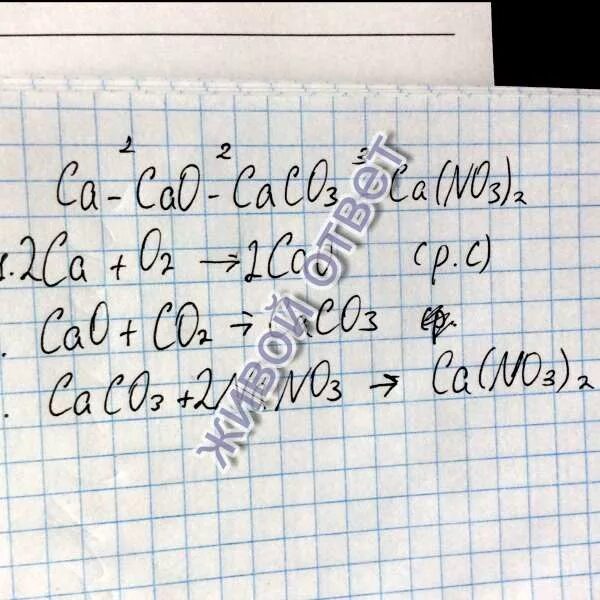 1 2 3
Ca - CaO - CaCO3 Ca(NO3)2
1. 2Ca + O2 → 2CaO (p.c)
. CaO + CO2 → CaCO3
. CaCO3 + 2 NO3 → Ca(NO3)2
ЖИВОЙ ОТВЕТ